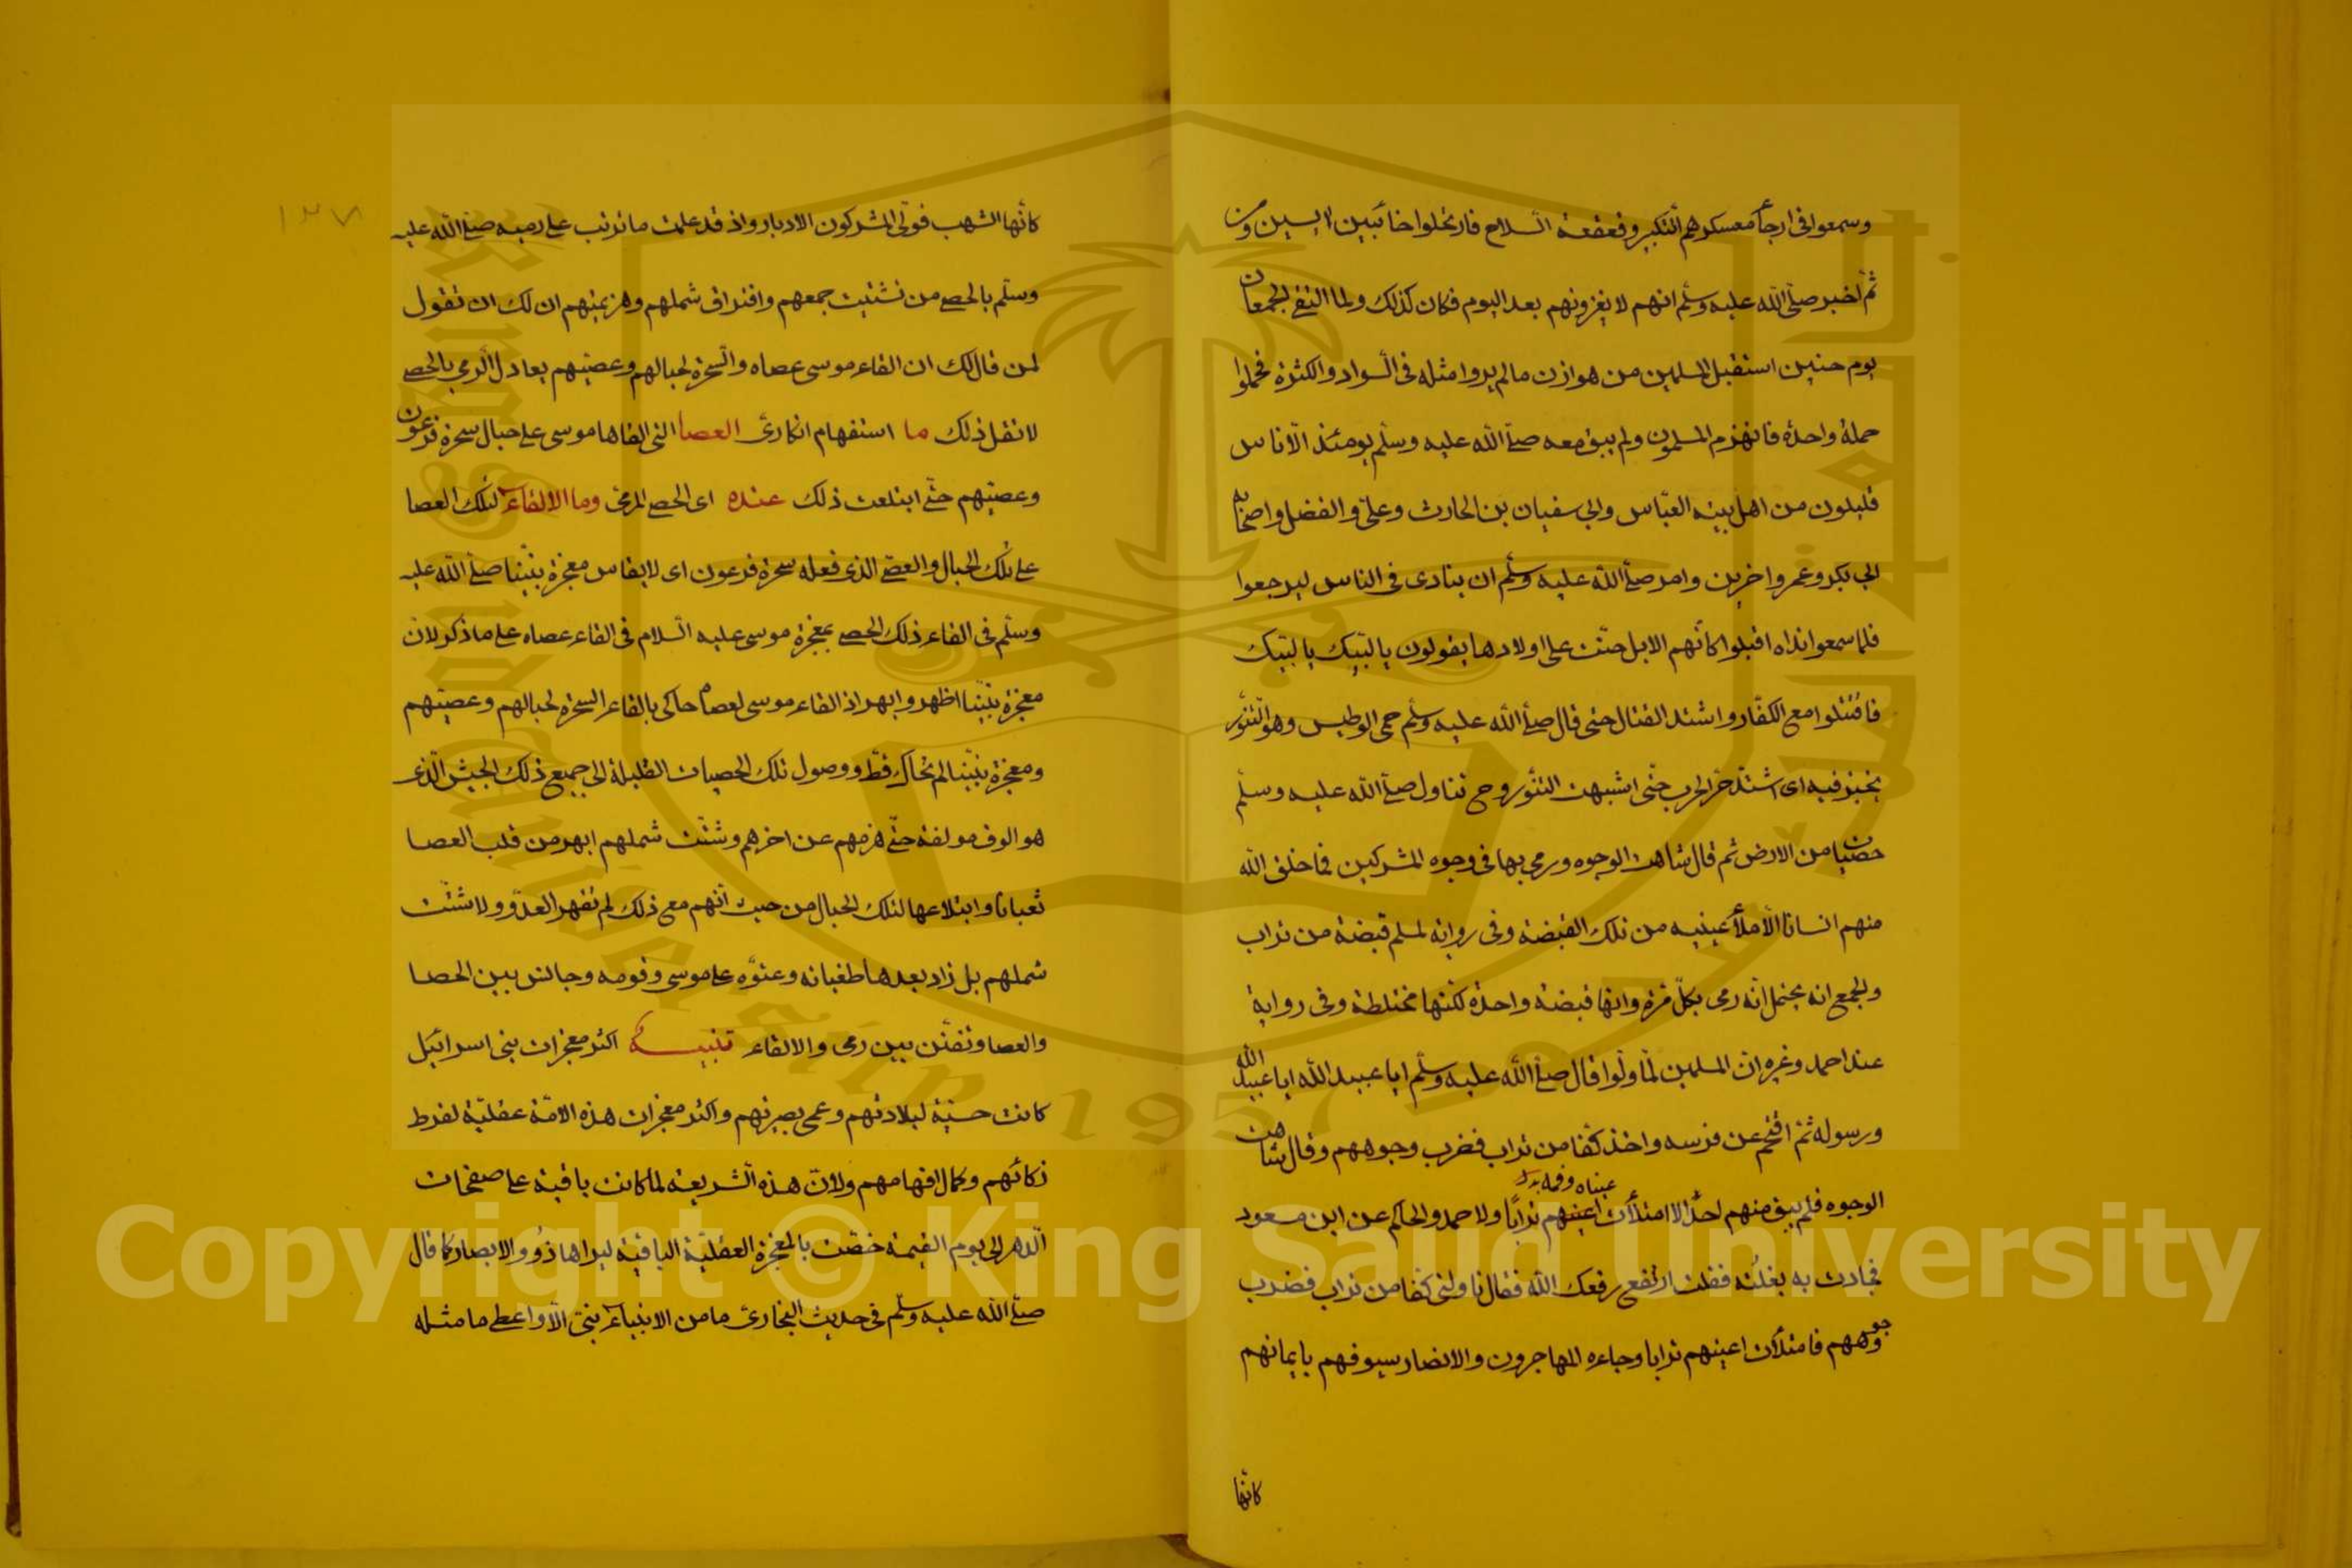 وسمعوا فى ارجأ معسكرهم التكبير وقعقعة السلاح فارتحلوا خائبين ايسين ومن
ثم اخبر صلى الله عليه وسلم انهم لا يغزونهم بعد اليوم فكان كذلك ولما التقى الجمعان
يوم حنين استقبل المسلمين من هوازن مالم يروا مثله فى السواد والكثرة فحملوا
حملة واحدة فانهزم المسلمون ولم يبق معه صلى الله عليه وسلم يومئذ الا ناس
قليلون من اهل بيته العباس وابي سفيان بن الحارث وعلى والفضل واصحابه
ابي بكر وعمر واخرين وامر صلى الله عليه وسلم ان ينادى فى الناس ليرجعوا
فلما سمعوا نداه اقبلوا كانهم الابل حنت على اولادها يقولون يا لبيك يا لبيك
فاقتتلوا مع الكفار واشتد القتال حتى قال صلى الله عليه وسلم حمى الوطيس وهو التنور
يخبز فيه اى اشتد حر الحرب حتى اشبهت التنور وح تناول صلى الله عليه وسلم
حصيات من الارض ثم قال شاهت الوجوه ورمى بها فى وجوه المشركين فما خلق الله
منهم انسانا الا ملأ عينيه من تلك القبضة وفى رواية لمسلم قبضة من تراب
والجمع انه يحتمل انه رمى بكل مرة وانها قبضة واحدة لكنها مختلطة وفى رواية
عند احمد وغيره ان المسلمين لما ولوا قال صلى الله عليه وسلم ايا عبيد الله ايا عبيد الله
ورسوله ثم اقتحم عن فرسه واخذ كفا من تراب فضرب وجوههم وقال شاهت
عيناه وفمه
الوجوه فلم يبق منهم احد الا امتلأت اعينهم ترابا ولاحمد والحاكم عن ابن مسعود
فحادت به بغلته فقلت ارتفع رفعك الله فقال ناولنى كفا من تراب فضرب
وجوههم فامتلأت اعينهم ترابا وجاءه المهاجرون والانصار سيوفهم بايمانهم
كانها
١٣٧
كانها الشهب فولى المشركون الادبار واذ قد علمت ما ترتب على رميه صلى الله عليه
وسلم بالحصى من تشتيت جمعهم وافتراق شملهم وهزيمتهم ان لك ان تقول
لمن قال لك ان القاء موسى عصاه والسحرة لحبالهم وعصيهم يعادل الرمى بالحصى
لا تقل ذلك ما استفهام انكارى العصا التى القاها موسى على حبال سحرة فرعون
وعصيهم حتى ابتلعت ذلك عنده اى الحصى المرمى وما الالقاء لتلك العصا
على تلك الحبال والعصى الذى فعله سحرة فرعون اى لا يقاس معجزة نبينا صلى الله عليه
وسلم فى القاء ذلك الحصى بمعجزة موسى عليه السلام فى القاء عصاه على ما ذكر لان
معجزة نبينا اظهر وابهر اذ القاء موسى لعصاه حاكى بالقاء السحرة لحبالهم وعصيهم
ومعجزة نبينا لم تحاك قط ووصول تلك الحصيات القليلة الى جميع ذلك الجيش الذى
هو الوف مولفة حتى هزمهم عن اخرهم وشتت شملهم ابهر من قلب العصا
ثعبانا وابتلاعها لتلك الحبال من حيث انهم مع ذلك لم تقهر العدو ولا شتت
شملهم بل زاد بعدها طغيانه وعتوه على موسى وقومه وجانس بين الحصا
والعصا وتفنن بين رمى والالقاء تنبيه اكثر معجزات بنى اسرائيل
كانت حسية لبلادتهم وعمى بصيرتهم واكثر معجزات هذه الامة عقلية لفرط
ذكائهم وكمال افهامهم ولان هذه الشريعة لما كانت باقية على صفحات
الدهر الى يوم القيمة خصت بالمعجزة العقلية الباقية ليراها ذوو الابصار كما قال
صلى الله عليه وسلم فى حديث البخارى ما من الانبياء نبى الا واعطى ما مثله
Copyright © King Saud University
King Saud University
1957